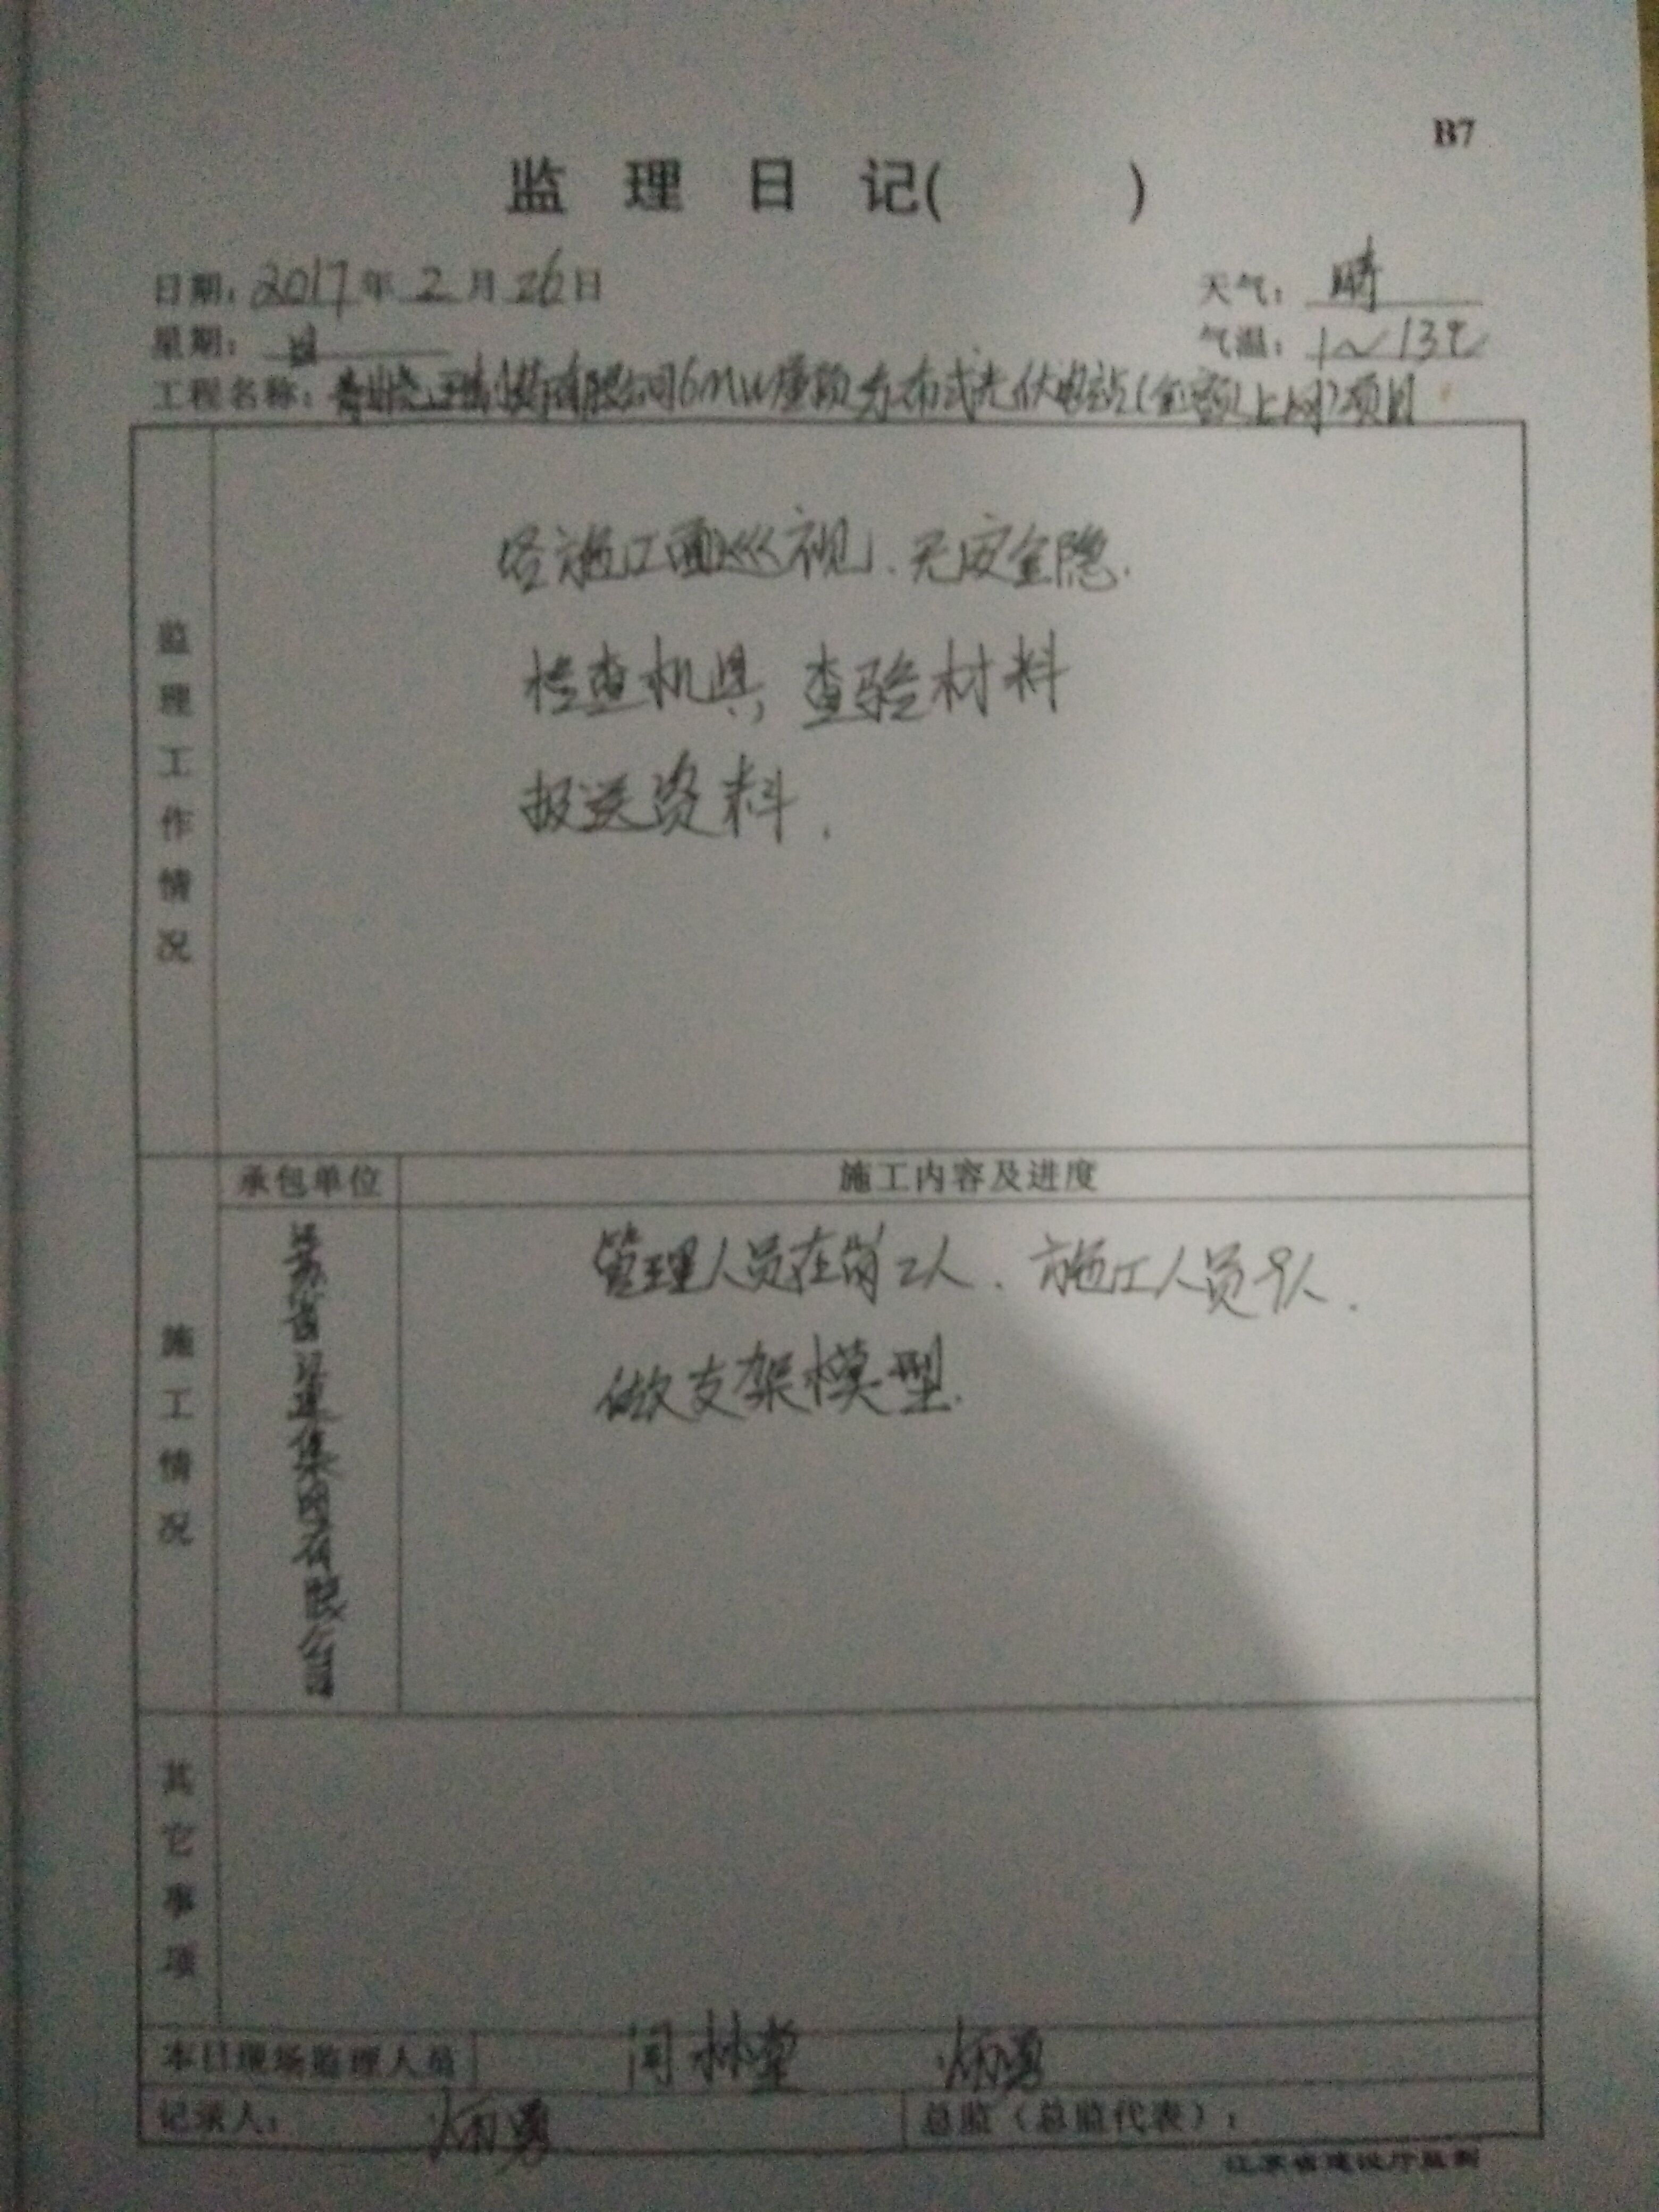 B7
监理日记( )
日期：2017年2月26日 天气：晴
星期：日 气温：1~13℃
工程名称：有限公司6MW屋顶分布式光伏电站(全额上网)项目
监理工作情况
各施工面巡视.无安全隐.
检查机具,查验材料
报送资料.
施工情况
承包单位 施工内容及进度
江苏省集团有限公司
管理人员在岗2人.施工人员9人.
做支架模型.
其它事项
本日现场监理人员 闻林堂 炳勇
记录人：炳勇 总监（总监代表）：
江苏省建设厅监制